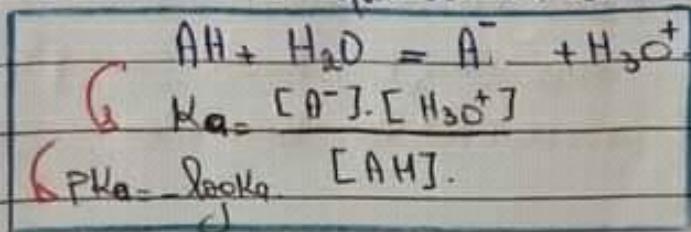 AH + H₂O = A⁻ + H₃O⁺
Ka = [A⁻].[H₃O⁺]
[AH].
PKa = -logKa.